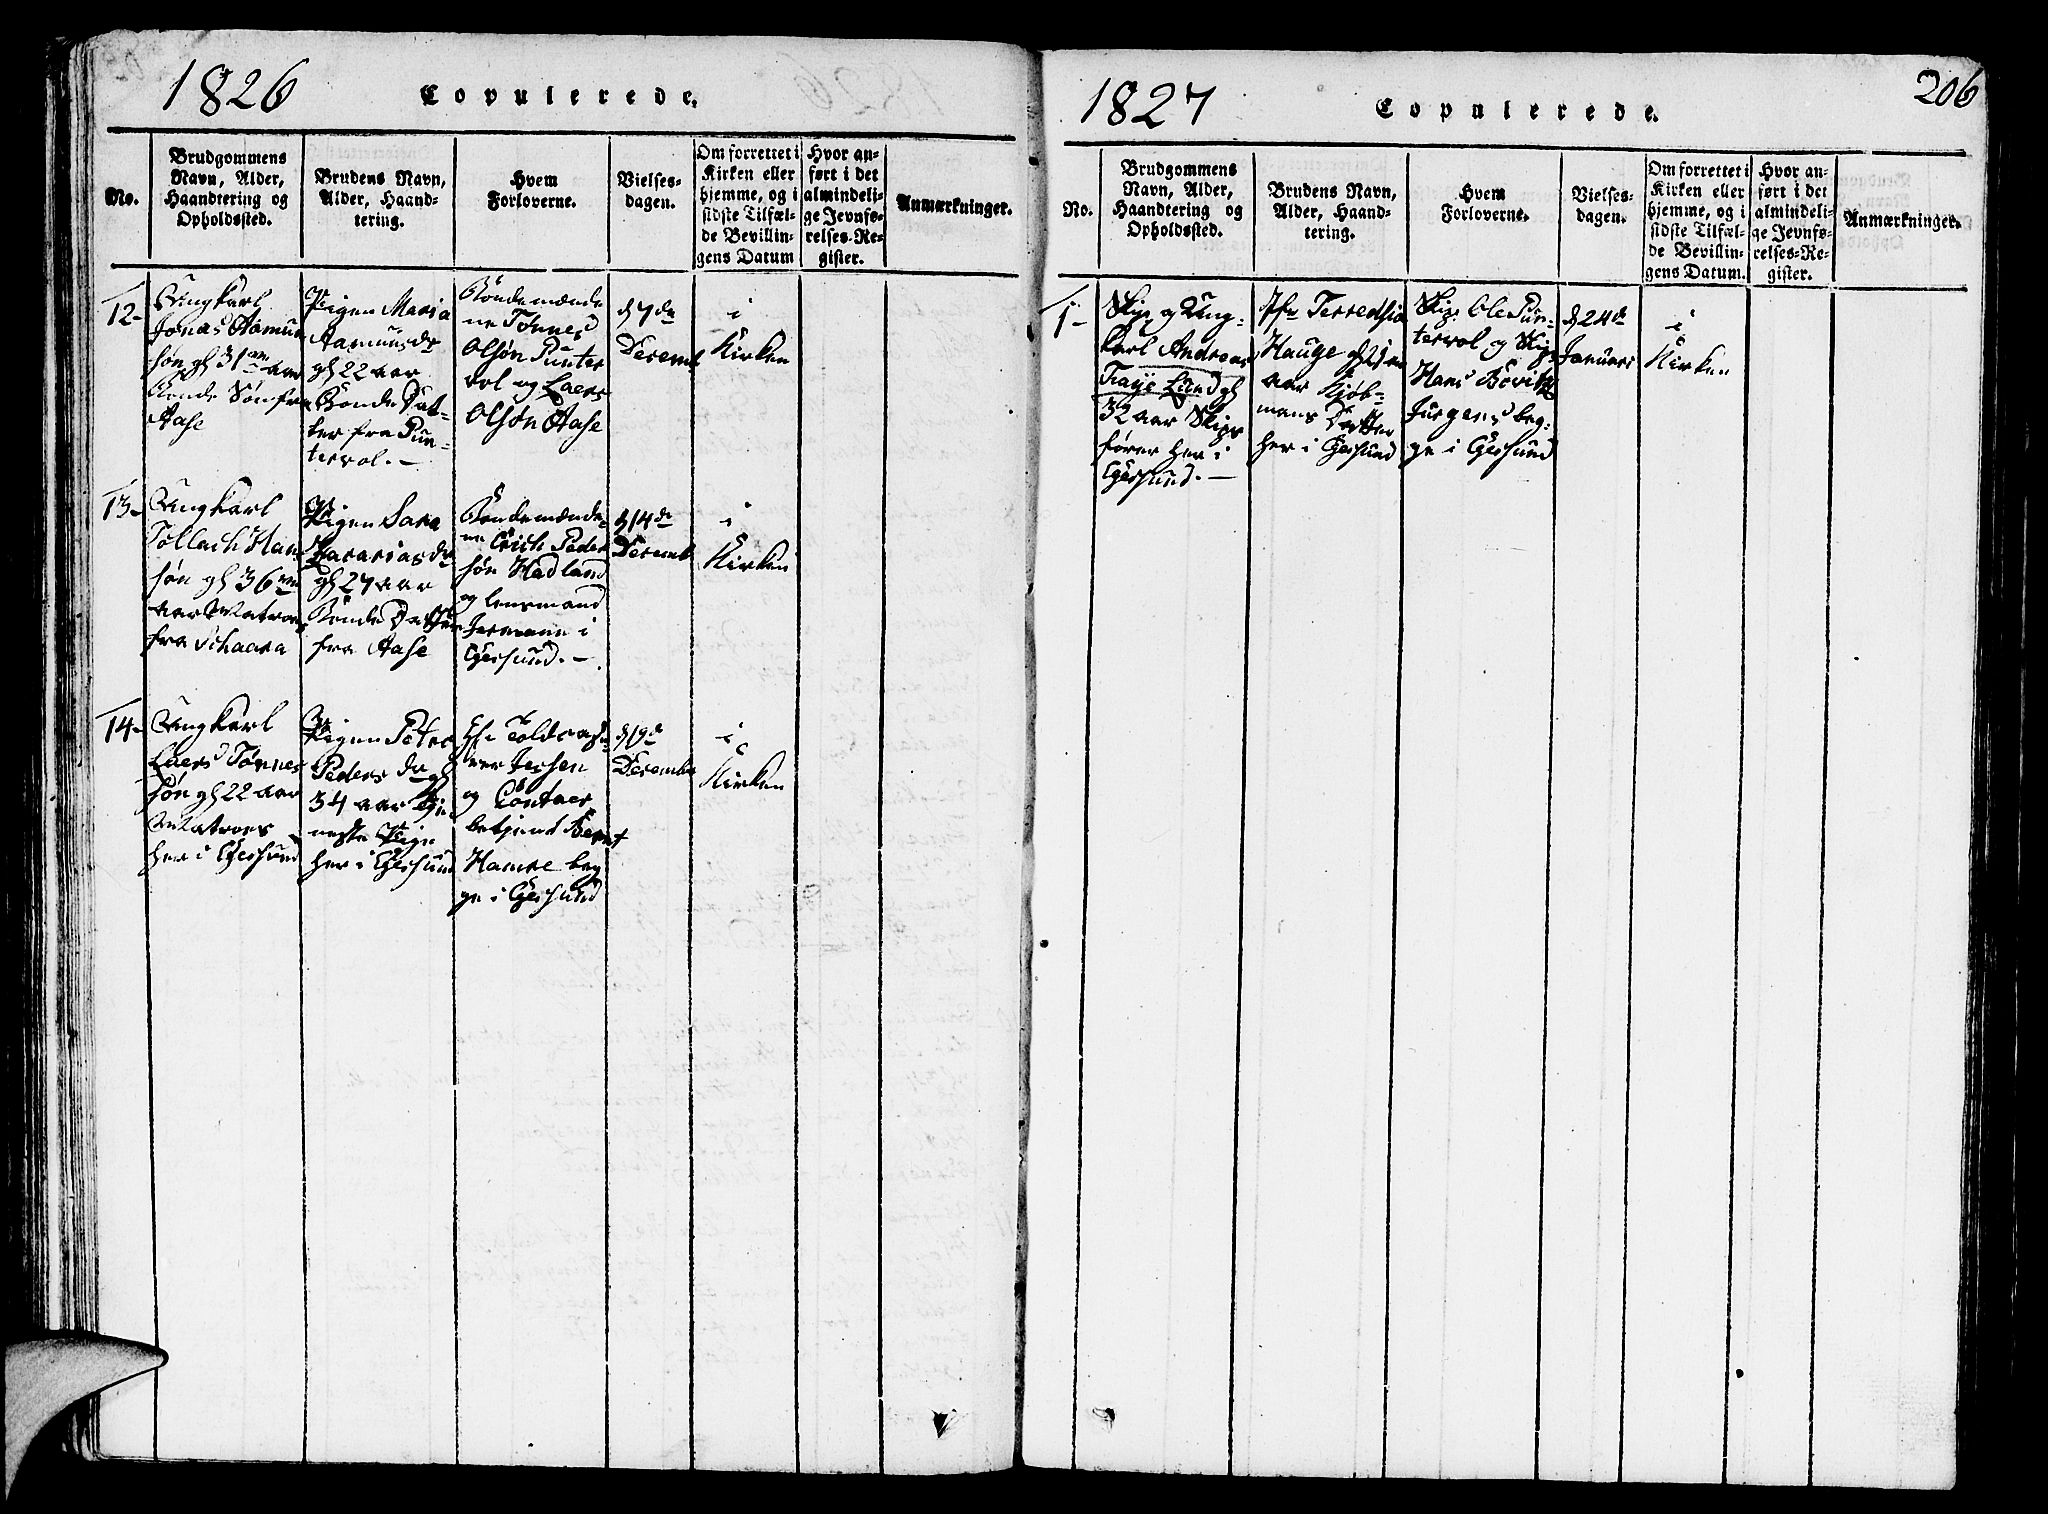 1826
Copulerede.
No.
Brudgommens
Navn, Alder,
Haandtering og
Opholdssted.
Brudens Navn,
Alder, Haand-
tering.
Hvem
Forloverne.
Vielses-
dagen.
Om forrettet i
Kirken eller
hjemme, og i
sidste Tilfæl-
de Bevillin-
gens Datum
Hvor an-
ført i det
almindeli-
ge Jevnfø-
relses-Re-
gister.
Anmærkninger.
12-
Ungkarl
Jonas Aamun
søn gl 31 aar
Bonde Søn fra
Aase
Pigen Maria
Aamunsdr
gl 22 aar
Bonde Dat-
ter fra Pun-
tervol.-
Bøndemænde
ne Tønnes
Olsøn Punter
vol og Laers
Olsøn Aase
d 7de
Decemb
i
Kirken
13-
Ungkarl
Tollach Han
søn gl 36
aar Matroes
fra Schaara
Pigen Sara
Zacariasdr
gl 27 aar
Bonde Datter
fra Aase
Bøndemænde-
ne Erich Peder
søn Hadland
og lensmand
i
Egersund.-
d 14de
Decemb
i
Kirken
14-
Ungkarl
Laers Tønnes
søn gl 22 aar
Matroes
her i Egersund
Pigen
Peders dr gl
34 aar
neste Pige
her i Egersund
Hr
Jessen
og
betjent Bernt
begge
ge i Egersund
d 19de
Decemb
i
Kirken
1827
Copulerede.
206
No.
Brudgommens
Navn, Alder,
Haandtering og
Opholdssted.
Brudens Navn,
Alder, Haand-
tering.
Hvem
Forloverne.
Vielses-
dagen.
Om forrettet i
Kirken eller
hjemme, og i
sidste Tilfæl-
de Bevillin-
gens Datum.
Hvor an-
ført i det
almindeli-
ge Jevnfø-
relses-Re-
gister.
Anmærkninger.
1-
Skip og Ung-
karl Andreas
Traye Lund gl
32 aar Skips
fører her i
Egersund.-
Jfr
Hauge
aar Kjøb-
mans Datter
her i Egersund
Skip. Ole Pun-
tervol og Skip
Hans
Jürgens beg-
ge i Egersund
d 24de
Januari
i
Kirken